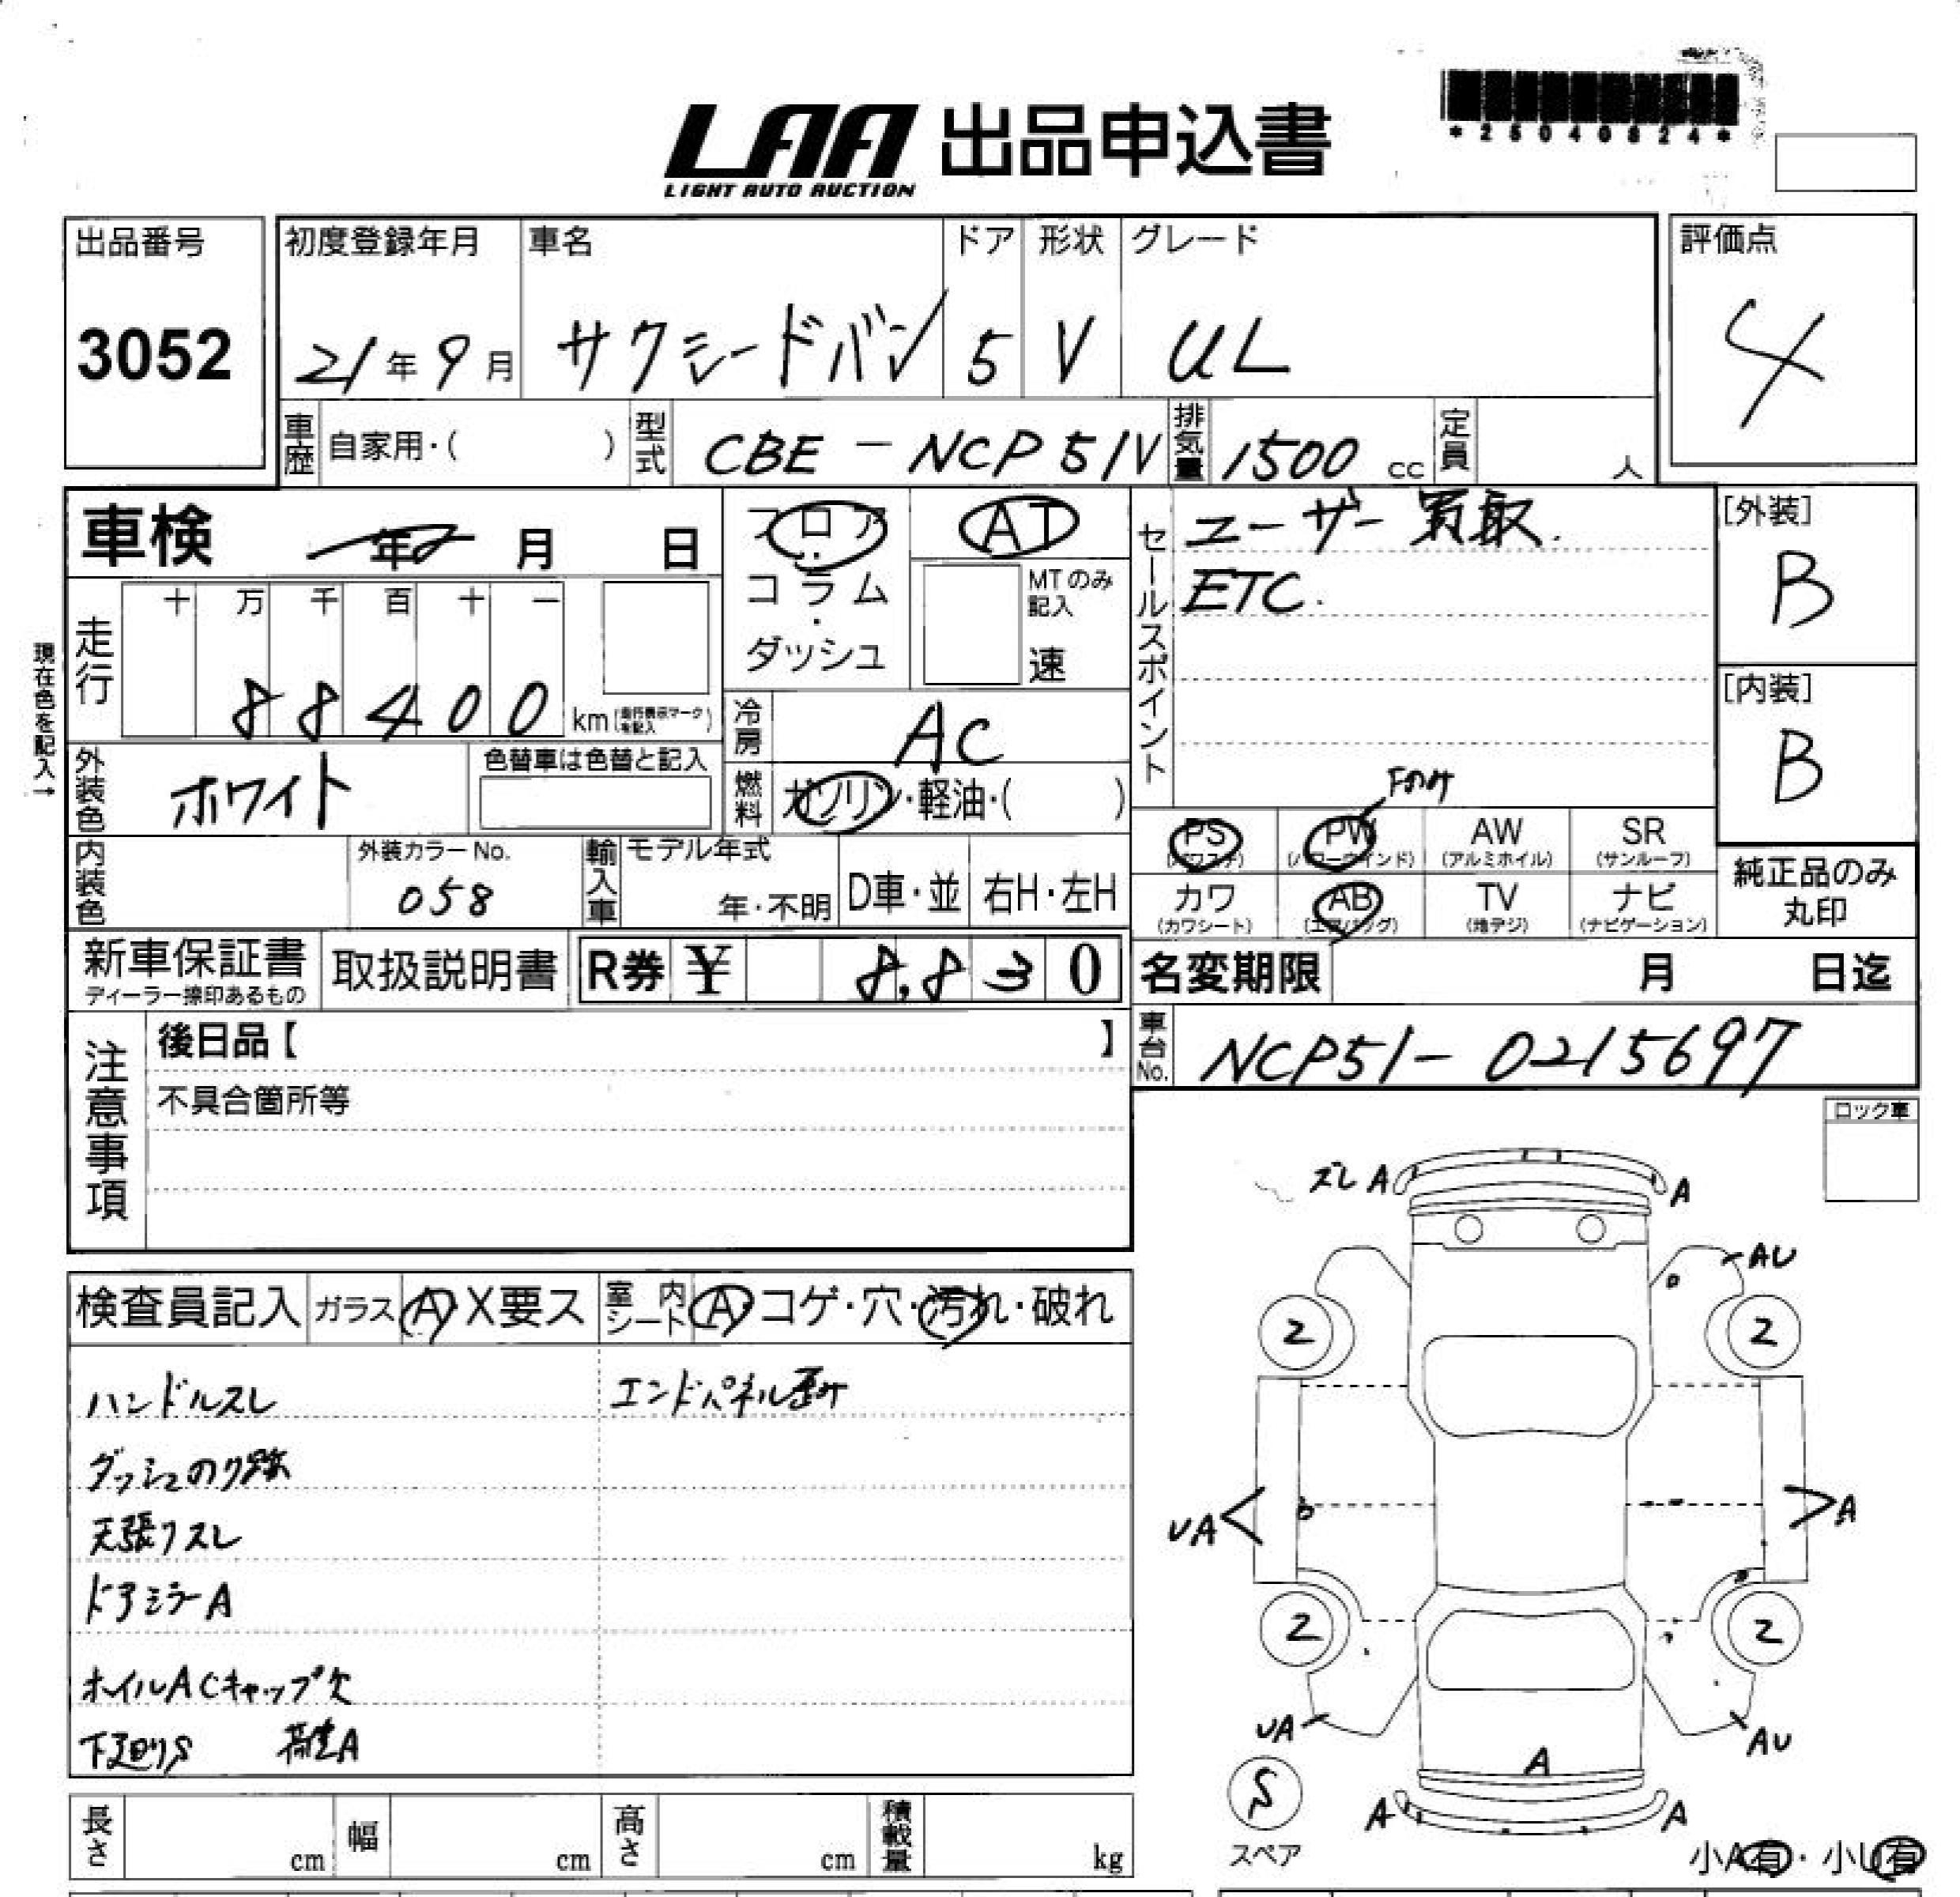 LAA 出品申込書
LIGHT AUTO AUCTION
*25040824*
出品番号
3052
初度登録年月
21年9月
車名
サクシードバン
ドア
5
形状
V
グレード
UL
評価点
4
車歴 自家用・( )
型式 CBE-NCP51V
排気量 1500 cc
定員 人
車検 年 月 日
フロア・コラム・ダッシュ
AT
MTのみ記入
速
セールスポイント
ユーザー買取.
ETC.
[外装]
B
[内装]
B
現在色を記入→
走行
十 万 千 百 十 一
8 8 4 0 0 km (走行表示マークを記入)
冷房 AC
外装色 ホワイト
色替車は色替と記入
燃料 ガソリン・軽油・( )
Fのみ
PS (パワステ)
PW (パワーウインド)
AW (アルミホイル)
SR (サンルーフ)
カワ (カワシート)
AB (エアバッグ)
TV (地デジ)
ナビ (ナビゲーション)
純正品のみ丸印
内装色
外装カラーNo.
058
輸入車
モデル年式
年・不明
D車・並
右H・左H
新車保証書
ディーラー捺印あるもの
取扱説明書
R券 ¥ 8,830
名変期限 月 日迄
車台No. NCP51-0215697
注意事項
後日品【 】
不具合箇所等
ロック車
検査員記入
ガラス A・X要ス
室内シート A・コゲ・穴・汚れ・破れ
ハンドルスレ
エンドパネル歪み
ダッシュのり跡
天張りスレ
ドアミラーA
ホイルACキャップ欠
下廻りS 荷室A
ズレ A
A
AU
2
2
UA
A
2
2
UA
AU
A
S
スペア
A
A
小A有・小U有
長さ cm
幅 cm
高さ cm
積載量 kg